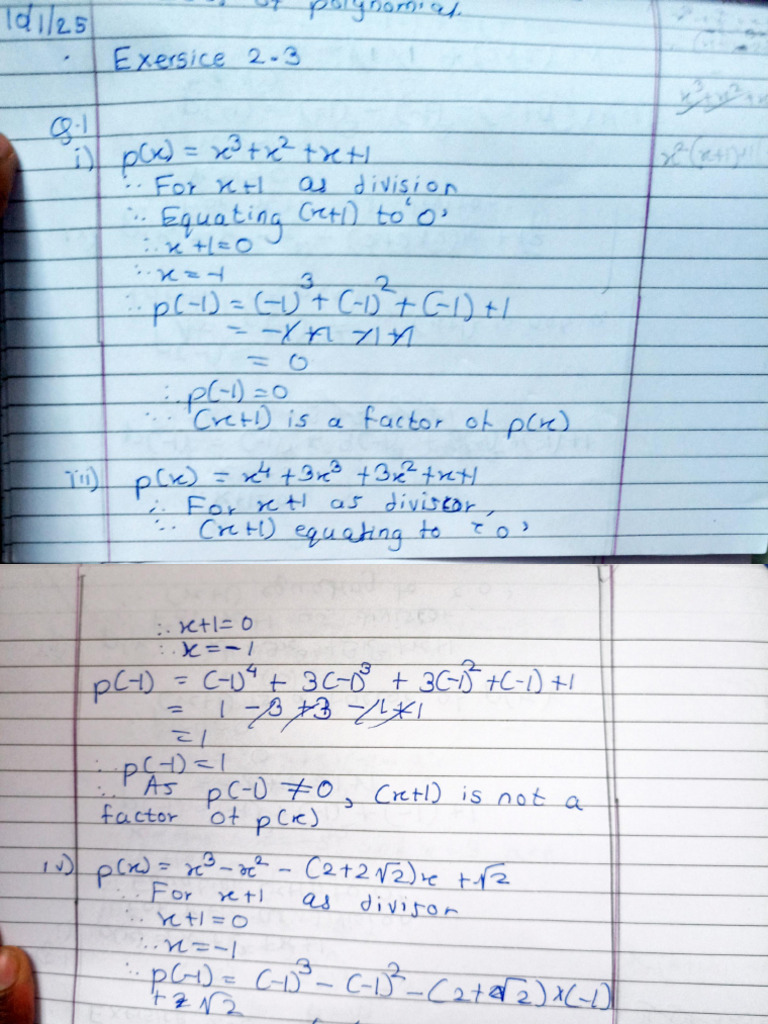 of polynomial.
1d1/25
Exersice 2.3
Q.1
i) p(x) = x³+x²+x+1
∴ For x+1 as division
∴ Equating (x+1) to '0'
∴ x+1=0
∴ x = -1
∴ p(-1) = (-1)³+(-1)²+(-1)+1
= -1+1-1+1
= 0
∴ p(-1)=0
∴ (x+1) is a factor of p(x)
iii) p(x) = x⁴+3x³+3x²+x+1
∴ For x+1 as divisor,
∴ (x+1) equating to '0'
∴ x+1=0
∴ x=-1
p(-1) = (-1)⁴ + 3(-1)³ + 3(-1)²+(-1)+1
= 1-3+3-1+1
=1
∴ p(-1)=1
∴ As p(-1) ≠ 0, (x+1) is not a
factor of p(x)
iv) p(x) = x³-x²-(2+2√2)x+√2
∴ For x+1 as divisor
∴ x+1=0
∴ x=-1
∴ p(-1) = (-1)³-(-1)²-(2+√2)×(-1)
+√2